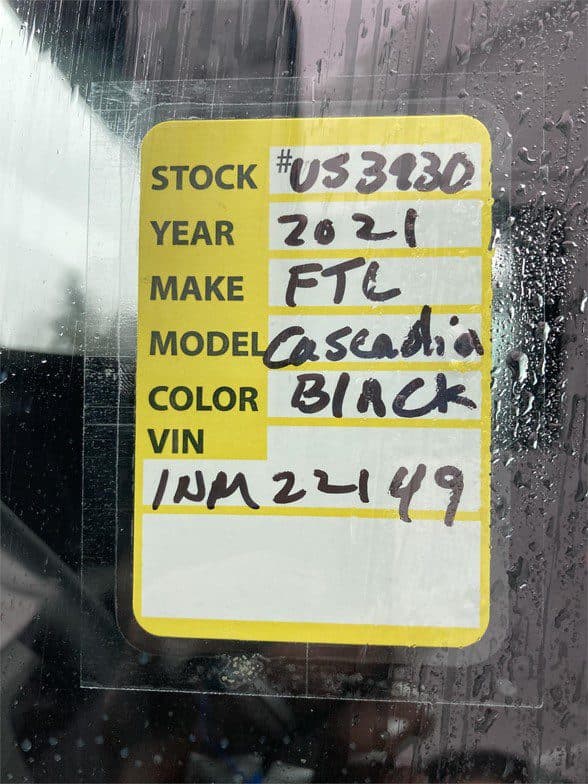 STOCK #US3930
YEAR 2021
MAKE FTL
MODEL Cascadia
COLOR BLACK
VIN
INM22149